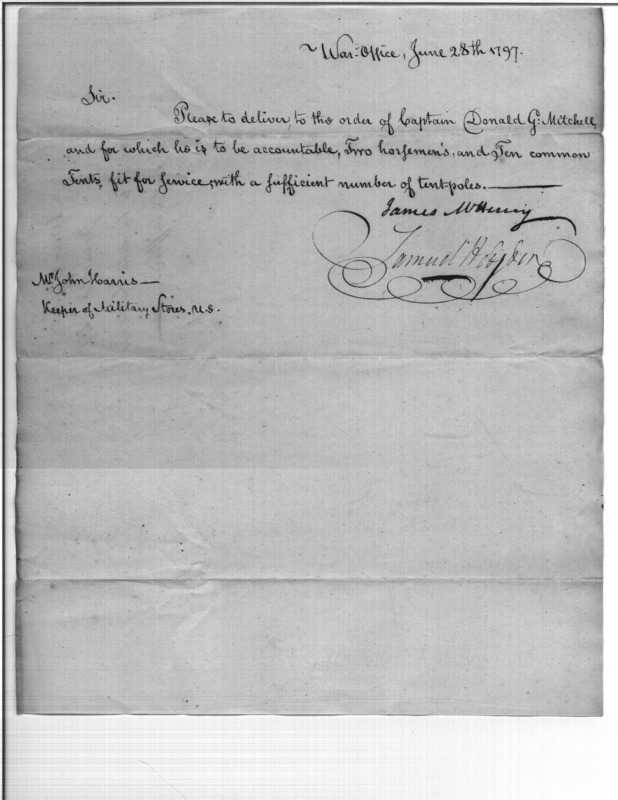 War-Office, June 28th 1797.
Sir.
Please to deliver, to the order of Captain Donald G. Mitchell,
and for which he is to be accountable, Two horsemen's, and Ten common
Tents, fit for service, with a sufficient number of tent-poles.
James McHenry
Samuel Hodgdon
Mr John Harris
Keeper of Military Stores. U.S.